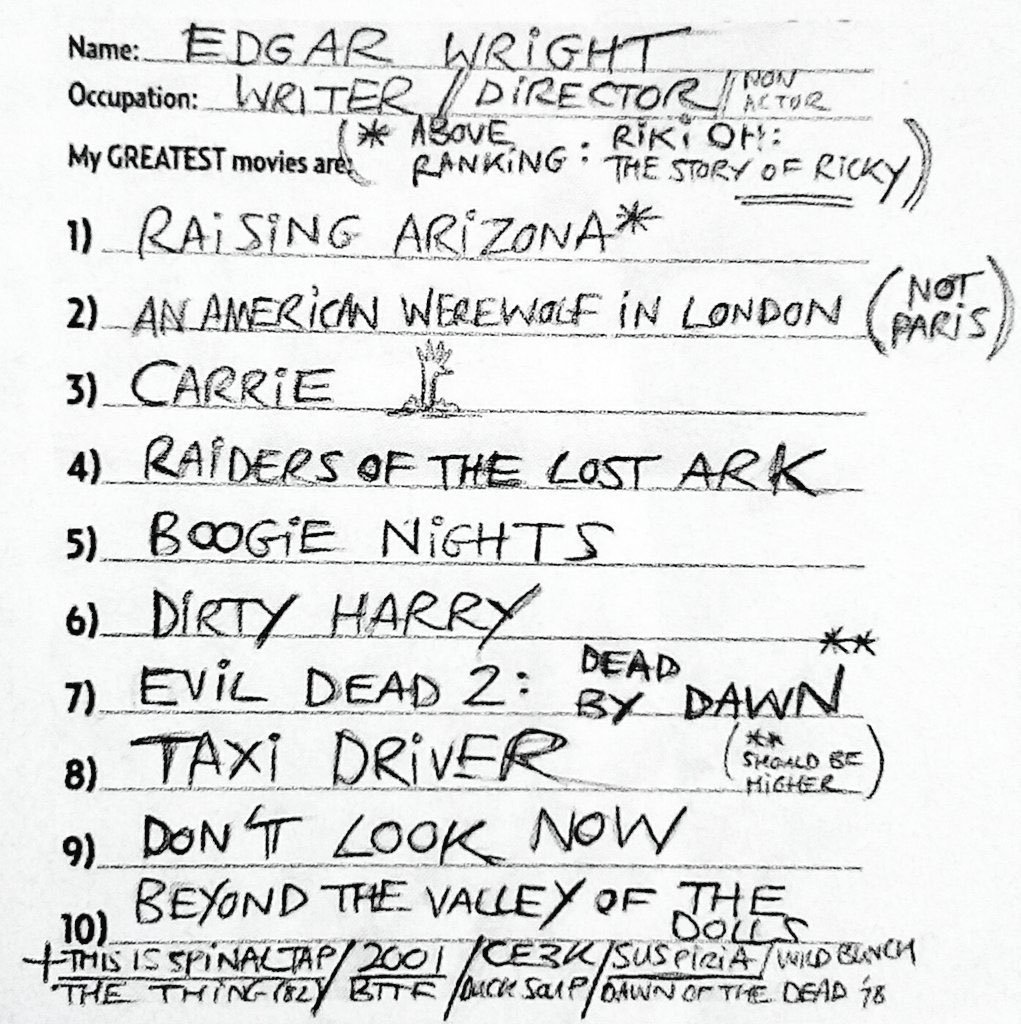 Name: EDGAR WRIGHT
Occupation: WRITER / DIRECTOR / NON ACTOR
My GREATEST movies are: (* ABOVE RANKING : RIKI OH: THE STORY OF RICKY)
1) RAISING ARIZONA*
2) AN AMERICAN WEREWOLF IN LONDON (NOT PARIS)
3) CARRIE
4) RAIDERS OF THE LOST ARK
5) BOOGIE NIGHTS
6) DIRTY HARRY
7) EVIL DEAD 2: DEAD BY DAWN **
8) TAXI DRIVER (** SHOULD BE HIGHER)
9) DON'T LOOK NOW
10) BEYOND THE VALLEY OF THE DOLLS
+ THIS IS SPINAL TAP / 2001 / CE3K / SUSPIRIA / WILD BUNCH
THE THING (82) / BTTF / DUCK SOUP / DAWN OF THE DEAD '78